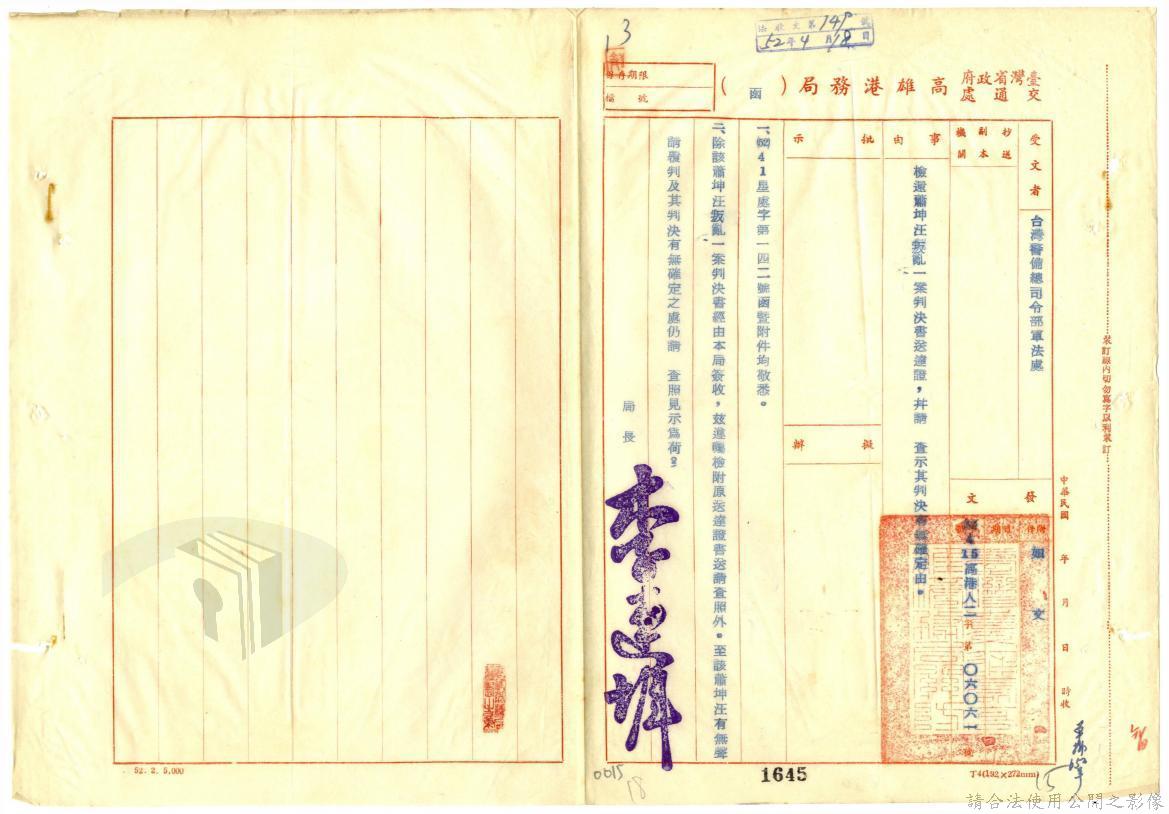 臺灣省政府
交通處
高雄港務局（函）
法收文第149號
52年4月18日
13
限期存
檔號
受文者
台灣警備總司令部軍法處
抄送
副本
機關
事由
檢還蕭坤汪叛亂一案判決書送達證，并請　查示其判決有無確定由。
批示
擬辦
發文
附件
如文
4 15高港人二字第〇六〇六一號
一、52 4 1星處字第一四二號函暨附件均敬悉。
二、除該蕭坤汪叛亂一案判決書經由本局簽收，茲遵囑檢附原送達證書送請查照外。至該蕭坤汪有無聲
請覆判及其判決有無確定之處仍請　查照見示為荷。
局長
李連墀
中華民國　年　月　日　時收
裝訂線內切勿寫字以利裝訂
1645
T4(192×272mm)
52. 2. 5,000
0015
18
請合法使用公開之影像